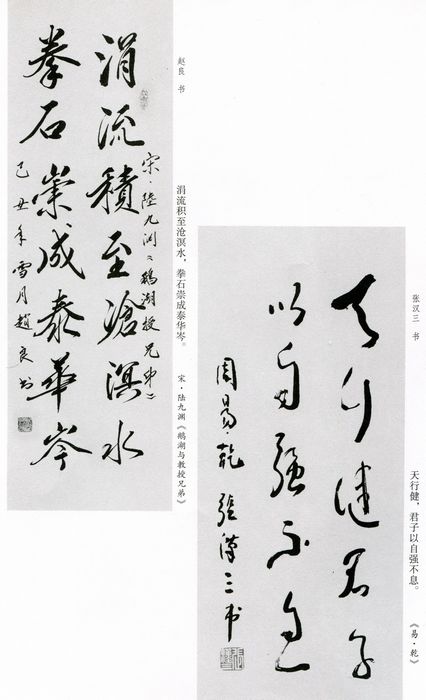 涓流積至滄溟水
宋·陸九渊《鵝湖授兄弟》
拳石崇成泰華岑
己丑年雪月趙良书
赵良 书
涓流积至沧溟水，拳石崇成泰华岑。 宋·陆九渊《鹅湖与教授兄弟》
天行健君子
以自强不息
周易·乾 張漢三书
张汉三 书
天行健，君子以自强不息。 《易·乾》